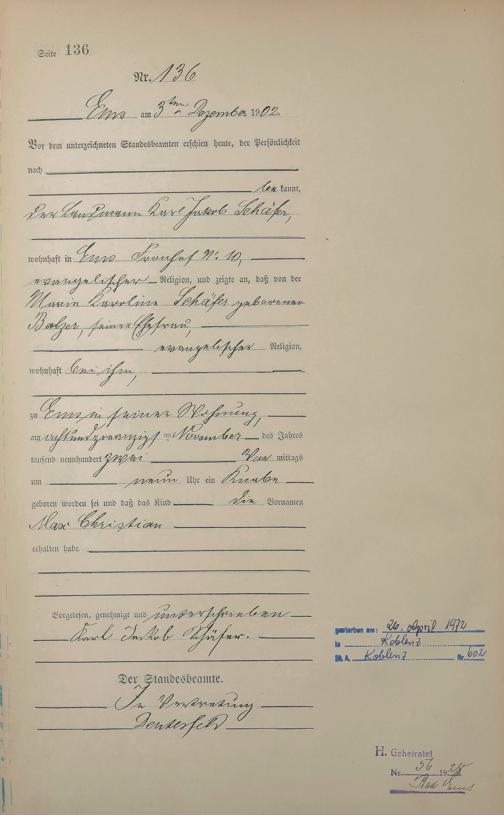 Seite 136
Nr. 136
Ems am 3ten Dezember 1902.
Vor dem unterzeichneten Standesbeamten erschien heute, der Persönlichkeit
nach
bekannt,
der Landmann Karl Jakob Schäfer,
wohnhaft in Ems Fronhof No 10,
evangelischer Religion, und zeigte an, daß von der
Maria Karoline Schäfer geborenen
Balzer, seiner Ehefrau,
evangelischer Religion,
wohnhaft bei ihm,
zu Ems in seiner Wohnung,
am achtundzwanzigsten November des Jahres
tausend neunhundert zwei Vormittags
um neun Uhr ein Knabe
geboren worden sei und daß das Kind die Vornamen
Max Christian
erhalten habe.
Vorgelesen, genehmigt und unterschrieben
Karl Jakob Schäfer.
gestorben am: 26. April 1972
in Koblenz
St. A. Koblenz Nr. 602
Der Standesbeamte.
In Vertretung
H. Geheiratet
Nr. 56 1928
Bad Ems